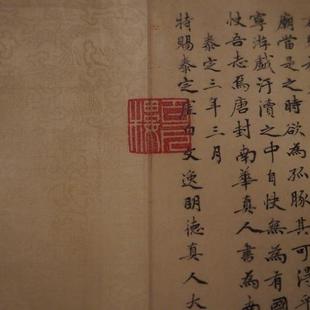 廟當是之時欲為孤豚其可得乎
寧游戲汙瀆之中自快無為有國
快吾志焉唐封南華真人書為南
泰定三年三月
特賜泰定虛白文逸明德真人大